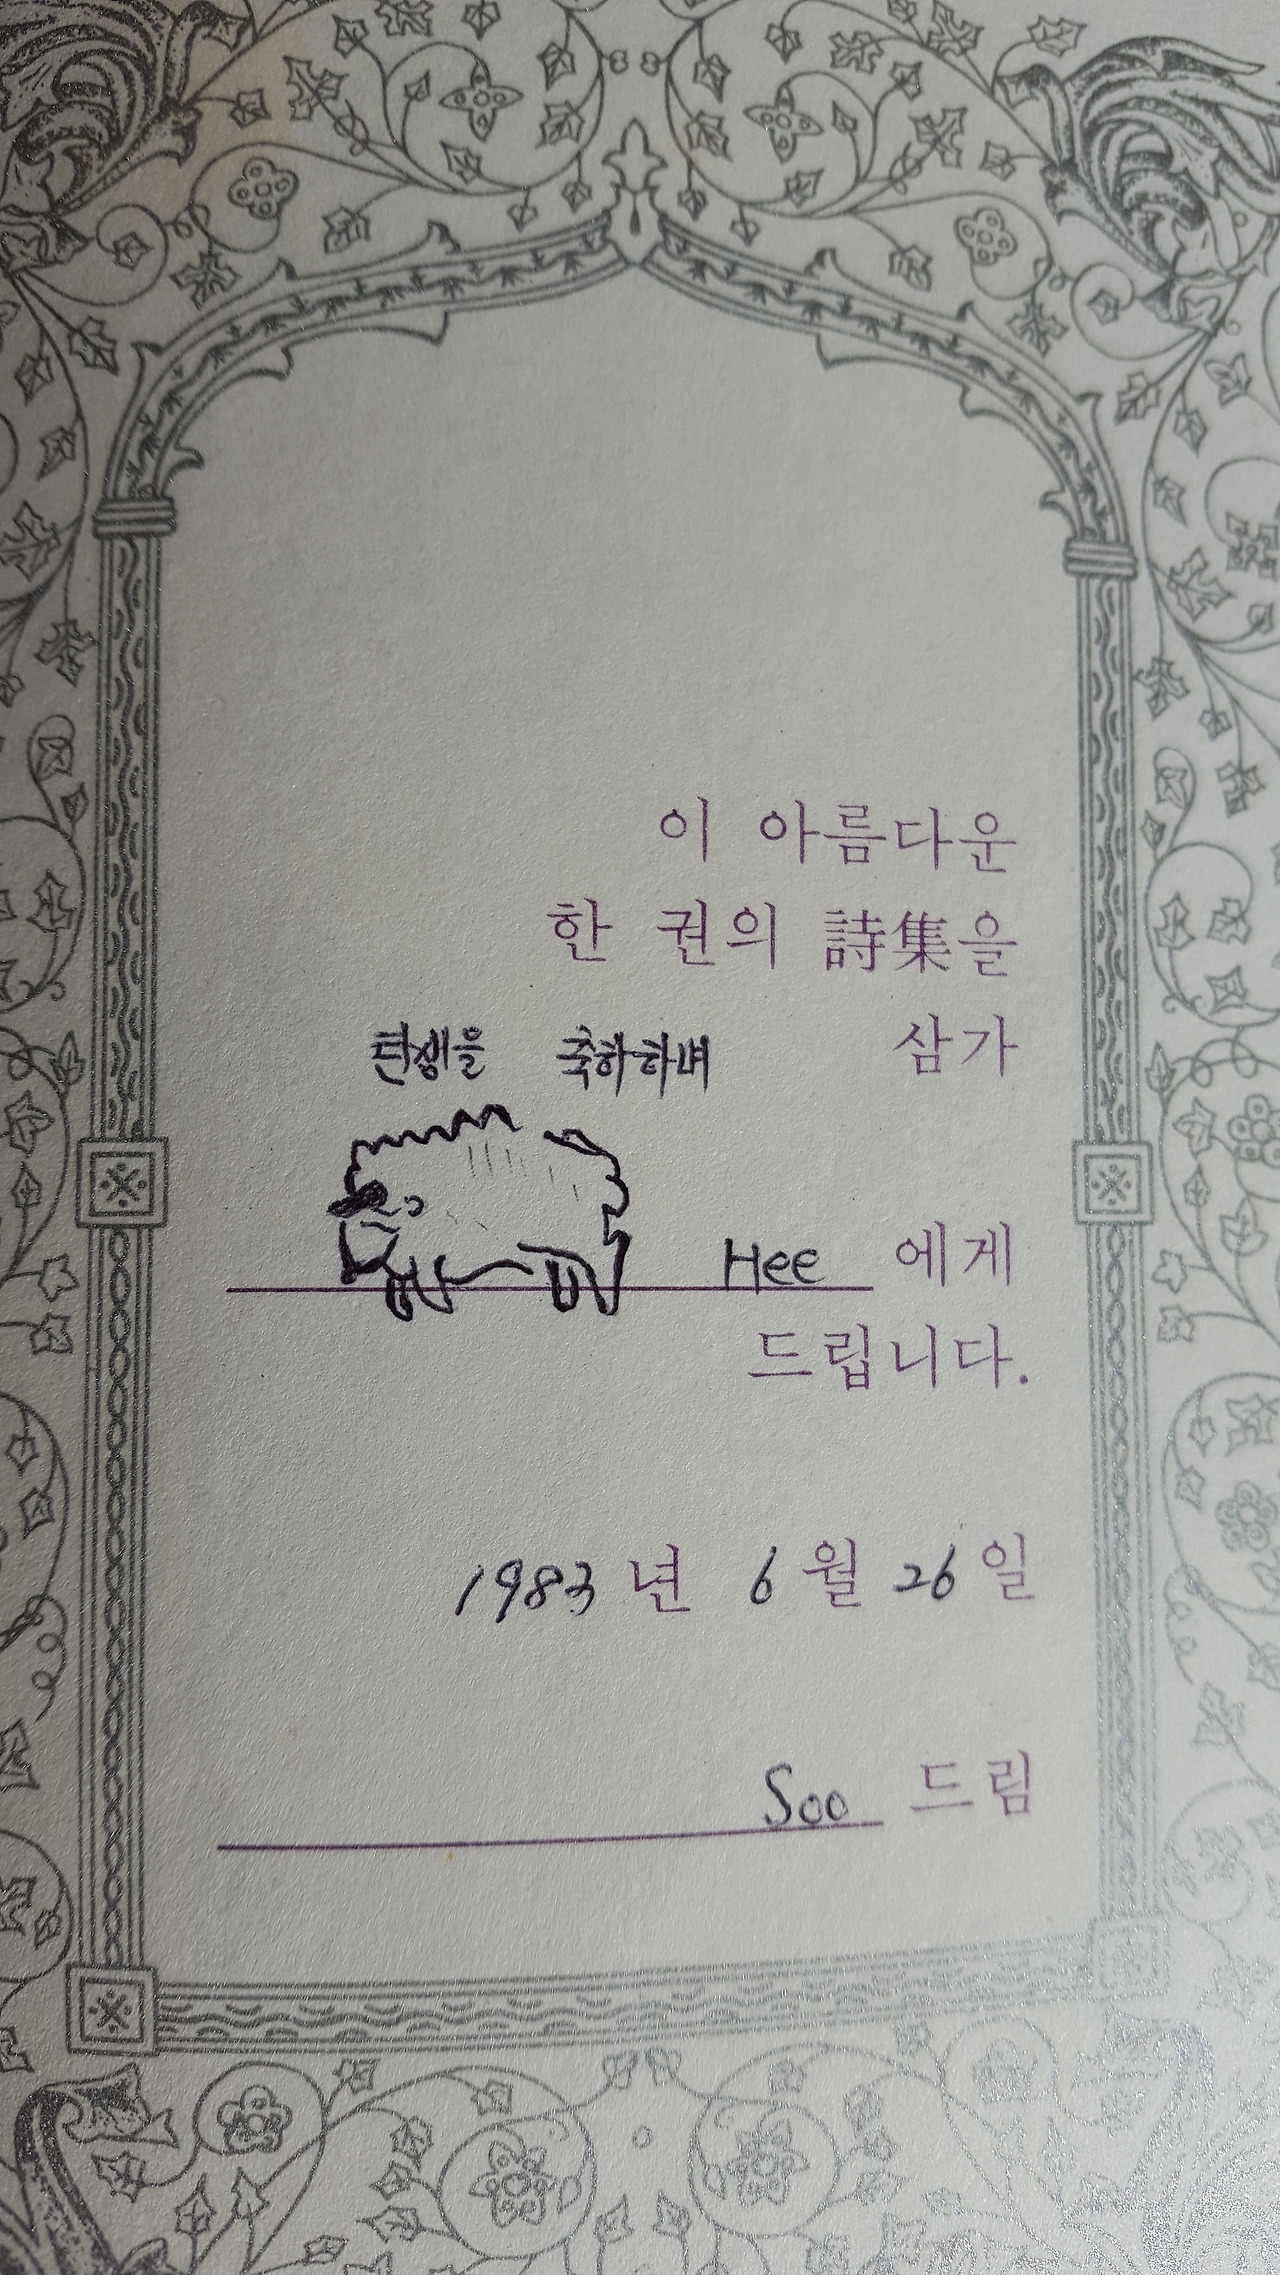 이 아름다운
한 권의 詩集을
탄생을 축하하며 삼가
Hee 에게
드립니다.
1983 년 6 월 26 일
Soo 드림